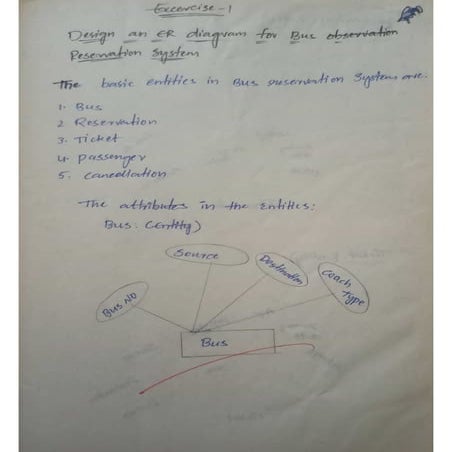 Excercise - 1
Design an ER diagram for Bus observation
Reservation System
The basic entities in Bus reservation System are:
1. Bus
2. Reservation
3. Ticket
4. Passenger
5. Cancellation
The attributes in the Entities:
Bus: (Entity)
Source
Destination
Coach type
Bus NO
Bus